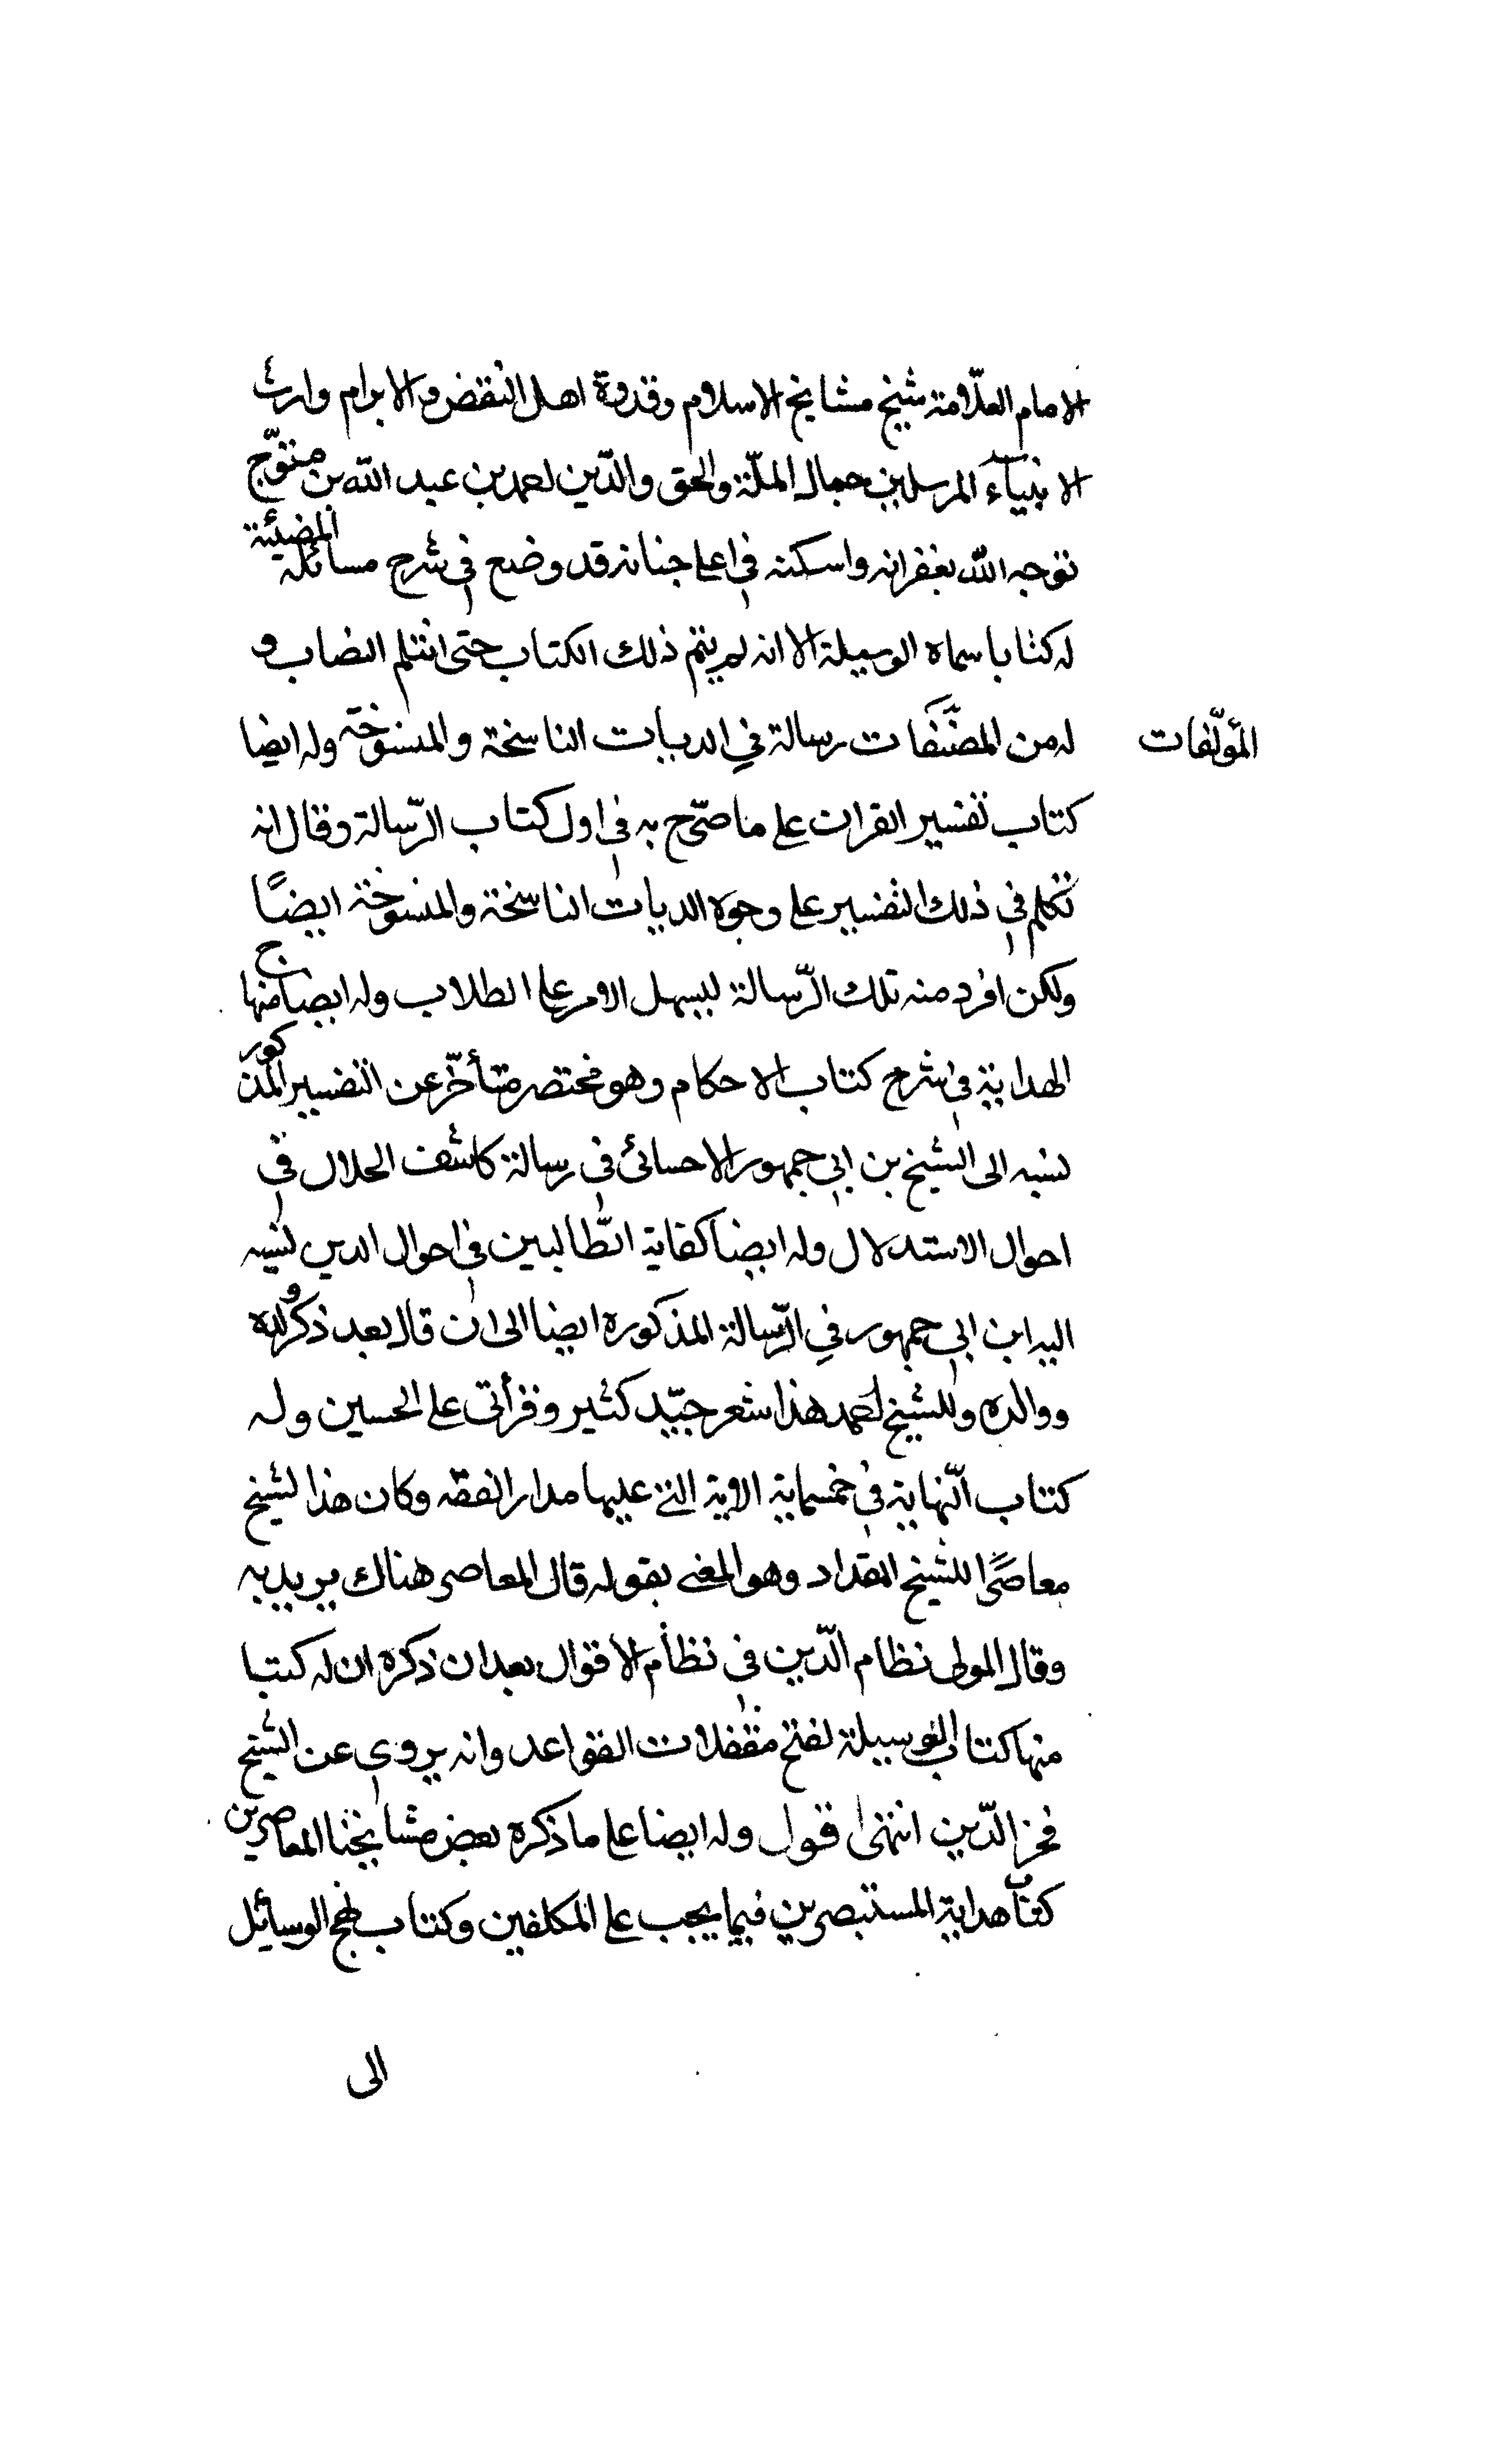 الامام العلّامة شيخ مشايخ الاسلام وقدوة اهل النقض والابرام وارث
الانبياء والمرسلين جمال الملّة والحق والدّين احمد بن عبد الله بن متوّج
توجه الله بغفرانه واسكنه في اعلى جنانه قد وضع في شرح مسائله المضيئة
له كتابا سماه الوسيلة الا انه لم يتم ذلك الكتاب حتى انثلم النصاب و
المؤلّفات
له من المصنّفات رسالة في الايات الناسخة والمنسوخة وله ايضا
كتاب تفسير القران على ما صرّح به في اول كتاب الرّسالة وقال انه
تكلم في ذلك التفسير على وجوه الايات الناسخة والمنسوخة ايضًا
ولكن افرد منه تلك الرّسالة ليسهل الامر على الطلاب وله ايضا منهاج
الهداية في شرح كتاب الاحكام وهو مختصر متأخّر عن التفسير المذكور
نسبه الى الشيخ بن ابي جمهور الاحسائي في رسالة كاشف الحلال في
احوال الاستدلال وله ايضا كفاية الطّالبين في احوال الدين نسبه
اليه ابن ابي جمهور في الرّسالة المذكورة ايضا الى ان قال بعد ذكر ولده
ووالده وللشيخ احمد هذا شعر جيّد كثير وقرأتي على الحسين وله
كتاب النّهاية في خمسماية الاية التي عليها مدار الفقه وكان هذا الشيخ
معاصرًا للشيخ المقداد وهو المعنى بقوله قال المعاصر هناك يريد به
وقال المولى نظام الدّين في نظام الاقوال بعد ان ذكره ان له كتبا
منها كتاب الوسيلة لفتح مقفلات القواعد وانه يروي عن الشيخ
فخر الدّين انتهى اقول وله ايضا على ما ذكره بعض مشايخنا المعاصرين
كتاب هداية المستبصرين فيما يجب على المكلفين وكتاب نهج الوسائل
الى